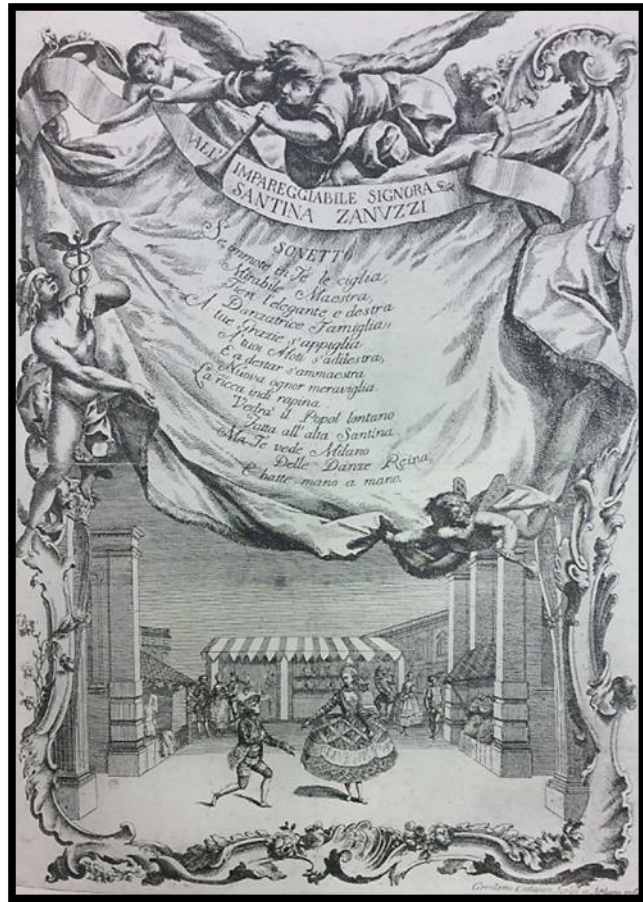 ALL'
IMPAREGGIABILE SIGNORA
SANTINA ZANVZZI
SONETTO
Se immote in Te le ciglia,
Mirabile Maestra,
Tien l'elegante e destra
Danzatrice Famiglia;
A tue Grazie s'appiglia
A tuoi Moti s'addestra,
E a destar s'ammaestra
Nuova ognor meraviglia.
La ricca indi rapina
Vedrà il Popol lontano
Fatta all'alta Santina
Ma Te vede Milano
Delle Danze Reina,
E batte mano a mano.